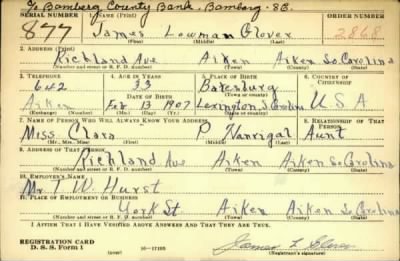 c/o Bamberg County Bank, Bamberg, S.C.
SERIAL NUMBER 1. NAME (Print) ORDER NUMBER
877 James Lowman Glover 2868
(First) (Middle) (Last)
2. ADDRESS (Print)
Richland Ave Aiken Aiken So Carolina
(Number and street or R. F. D. number) (Town) (County) (State)
3. TELEPHONE 4. AGE IN YEARS 5. PLACE OF BIRTH 6. COUNTRY OF CITIZENSHIP
642 33 Batesburg
DATE OF BIRTH
Aiken Feb 13 1907 Lexington S Carolina U S A
(Exchange) (Number) (Mo.) (Day) (Yr.) (State or country)
7. NAME OF PERSON WHO WILL ALWAYS KNOW YOUR ADDRESS 8. RELATIONSHIP OF THAT PERSON
Miss. Clara P Aunt
(Mr., Mrs., Miss) (First) (Middle) (Last)
9. ADDRESS OF THAT PERSON
Richland Ave Aiken Aiken So Carolina
(Number and street or R. F. D. number) (Town) (County) (State)
10. EMPLOYER'S NAME
Mr T. W. Hurst
11. PLACE OF EMPLOYMENT OR BUSINESS
York St. Aiken Aiken So Carolina
(Number and street or R. F. D. number) (Town) (County) (State)
I AFFIRM THAT I HAVE VERIFIED ABOVE ANSWERS AND THAT THEY ARE TRUE.
REGISTRATION CARD
D. S. S. FORM 1 16—17105 James L Glover
(over) (Registrant's signature)